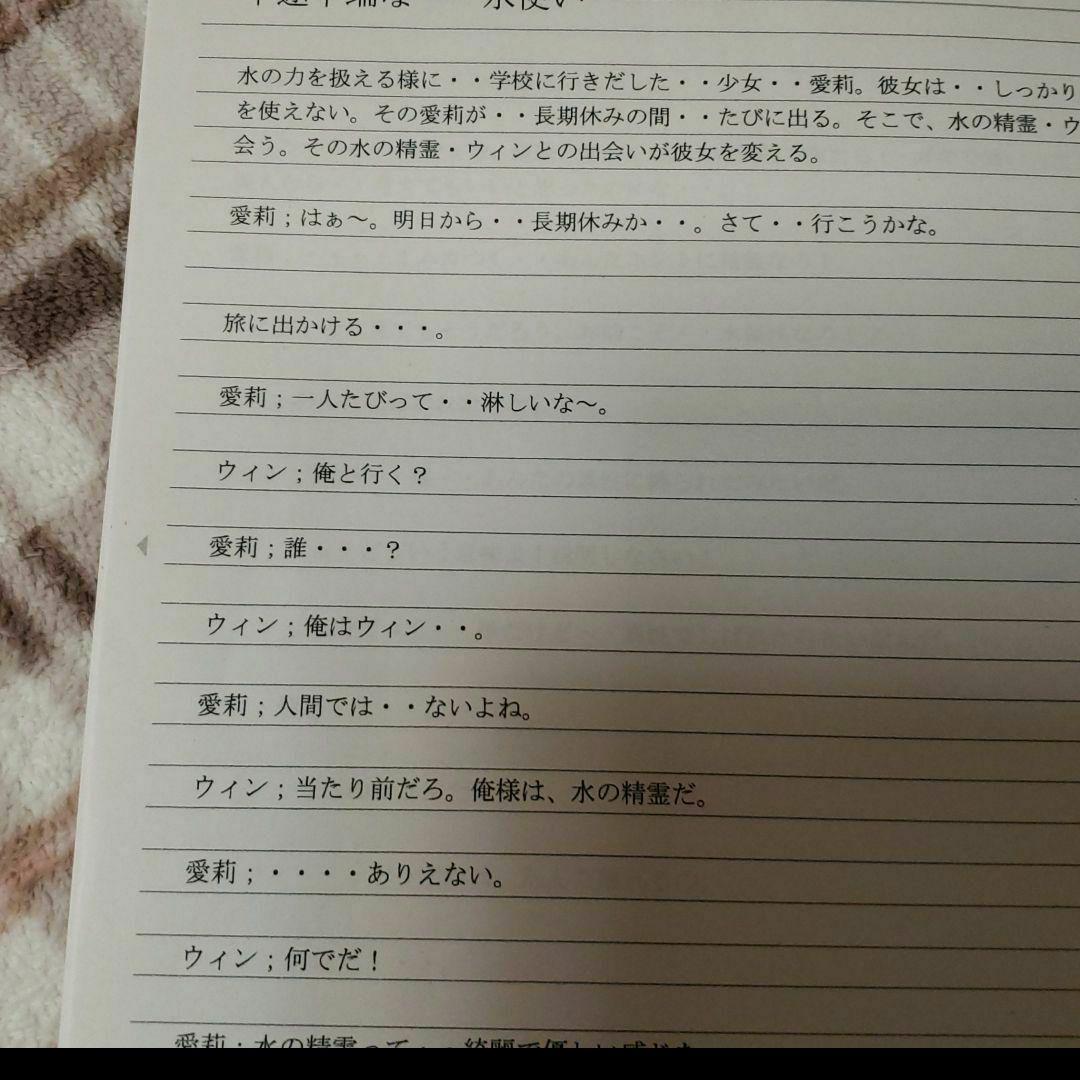 中途半端な・・水使い
水の力を扱える様に・・学校に行きだした・・少女・・愛莉。彼女は・・しっかり
を使えない。その愛莉が・・長期休みの間・・たびに出る。そこで、水の精霊・ウ
会う。その水の精霊・ウィンとの出会いが彼女を変える。
愛莉；はぁ～。明日から・・長期休みか・・。さて・・行こうかな。
旅に出かける・・・。
愛莉；一人たびって・・淋しいな～。
ウィン；俺と行く？
愛莉；誰・・・？
ウィン；俺はウィン・・。
愛莉；人間では・・ないよね。
ウィン；当たり前だろ。俺様は、水の精霊だ。
愛莉；・・・・ありえない。
ウィン；何でだ！
愛莉；水の精霊って・・綺麗で優しい感じ